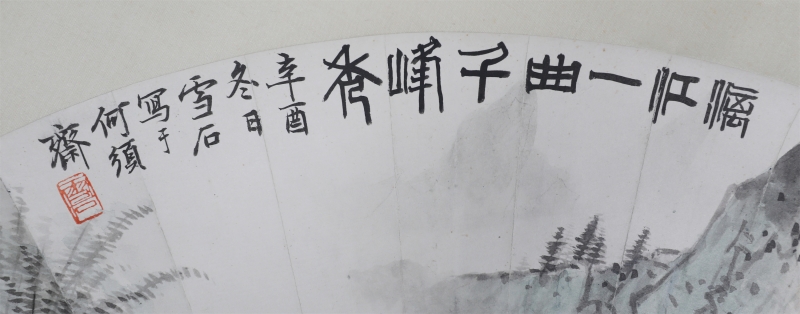 漓江一曲千峰秀
辛酉
冬日
雪石
寫于
何須
齋